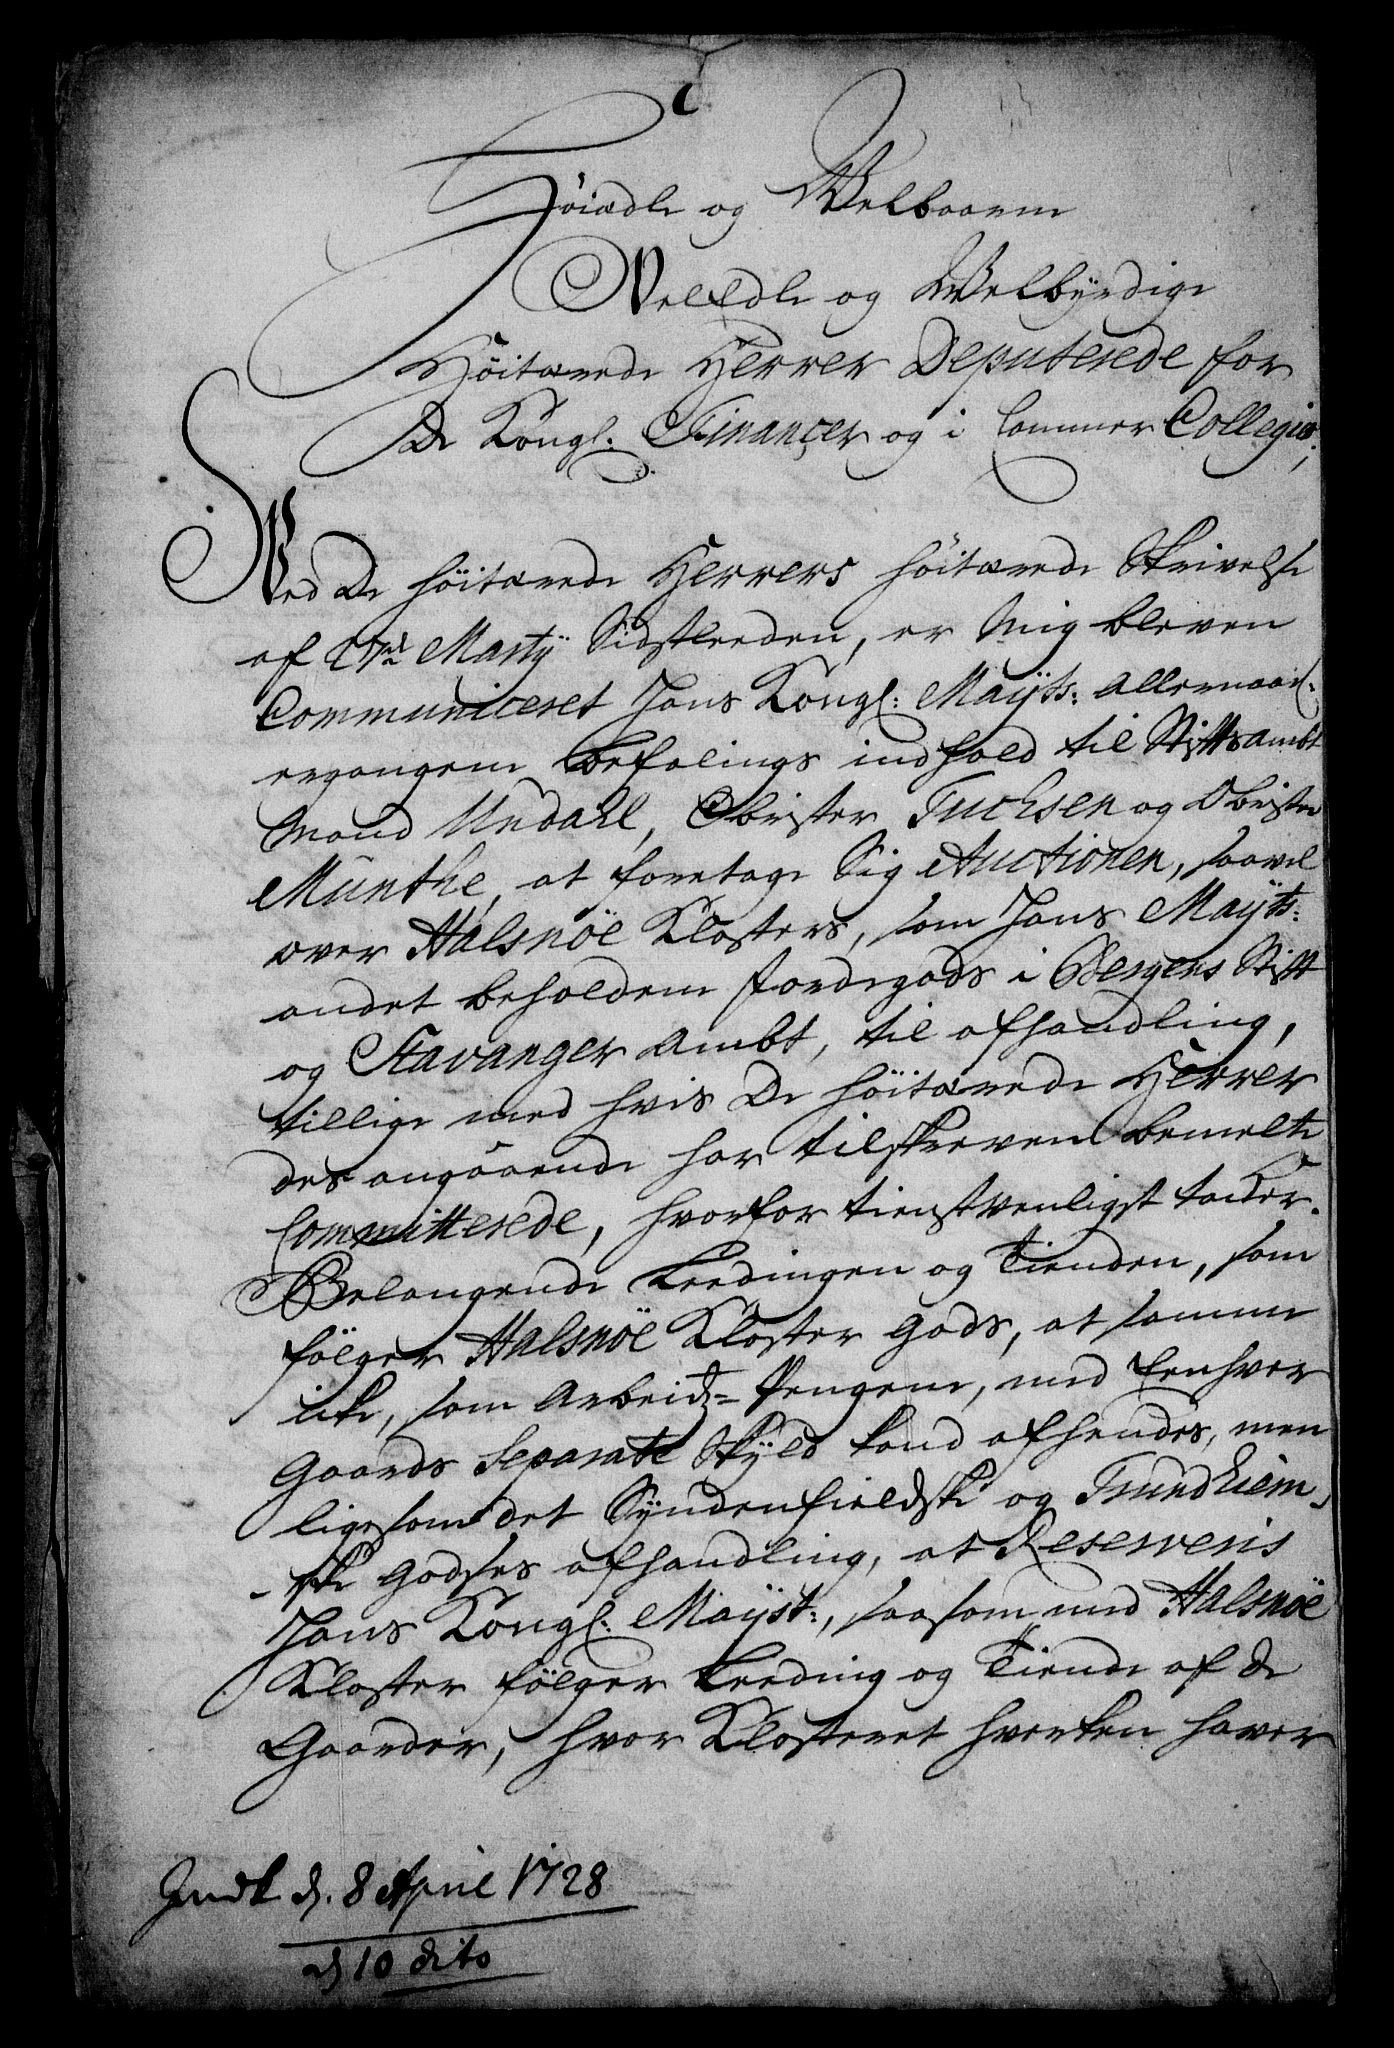 Höiædle og Welbaarne
Velædle og Welbyrdige
Höitærede Herrer Deputerede for
De Kongl: Financer og i Cammer Collegio,
Wed De höitærede Herrers höitærede Skrivelse
af 27de Marty Sidstleeden, er Mig bleven
Communiceret Hans Kongl: Mayts: Allernaad:
ergangene befalings indhold til Stiftsambt
Mand Undall, Obrister Tuchsen og Obrister
Munthe, at foretage Sig Auctionen, saavel
over Halsnöe Klosters, som Hans Mayts:
andet beholdene Jordegods i Bergens Stift
og Stavanger Ambt, til afhandling,
tillige med hvis De höitærede Herrer
des angaaende har tilskreven bemelte
Committerede, hvorfor tienstvenligst takker.
Belangende Leedingen og Tienden, som
fölger Halsnöe Kloster Gods, at samme
icke, som Arbeids-Pengene, med Eenhver
Gaards Separate Skyld kand afhendes, men
ligesom det Syndenfieldske og Trundhiem-
-ske Godses afhandling, at Reserveris
Hans Kongl: Mayst:, saasom med Halsnöe
Kloster fölger Leeding og Tiende af de
Gaarder, hvor Klosteret hverken haver
Indk d. 8 April 1728
d 10 dito